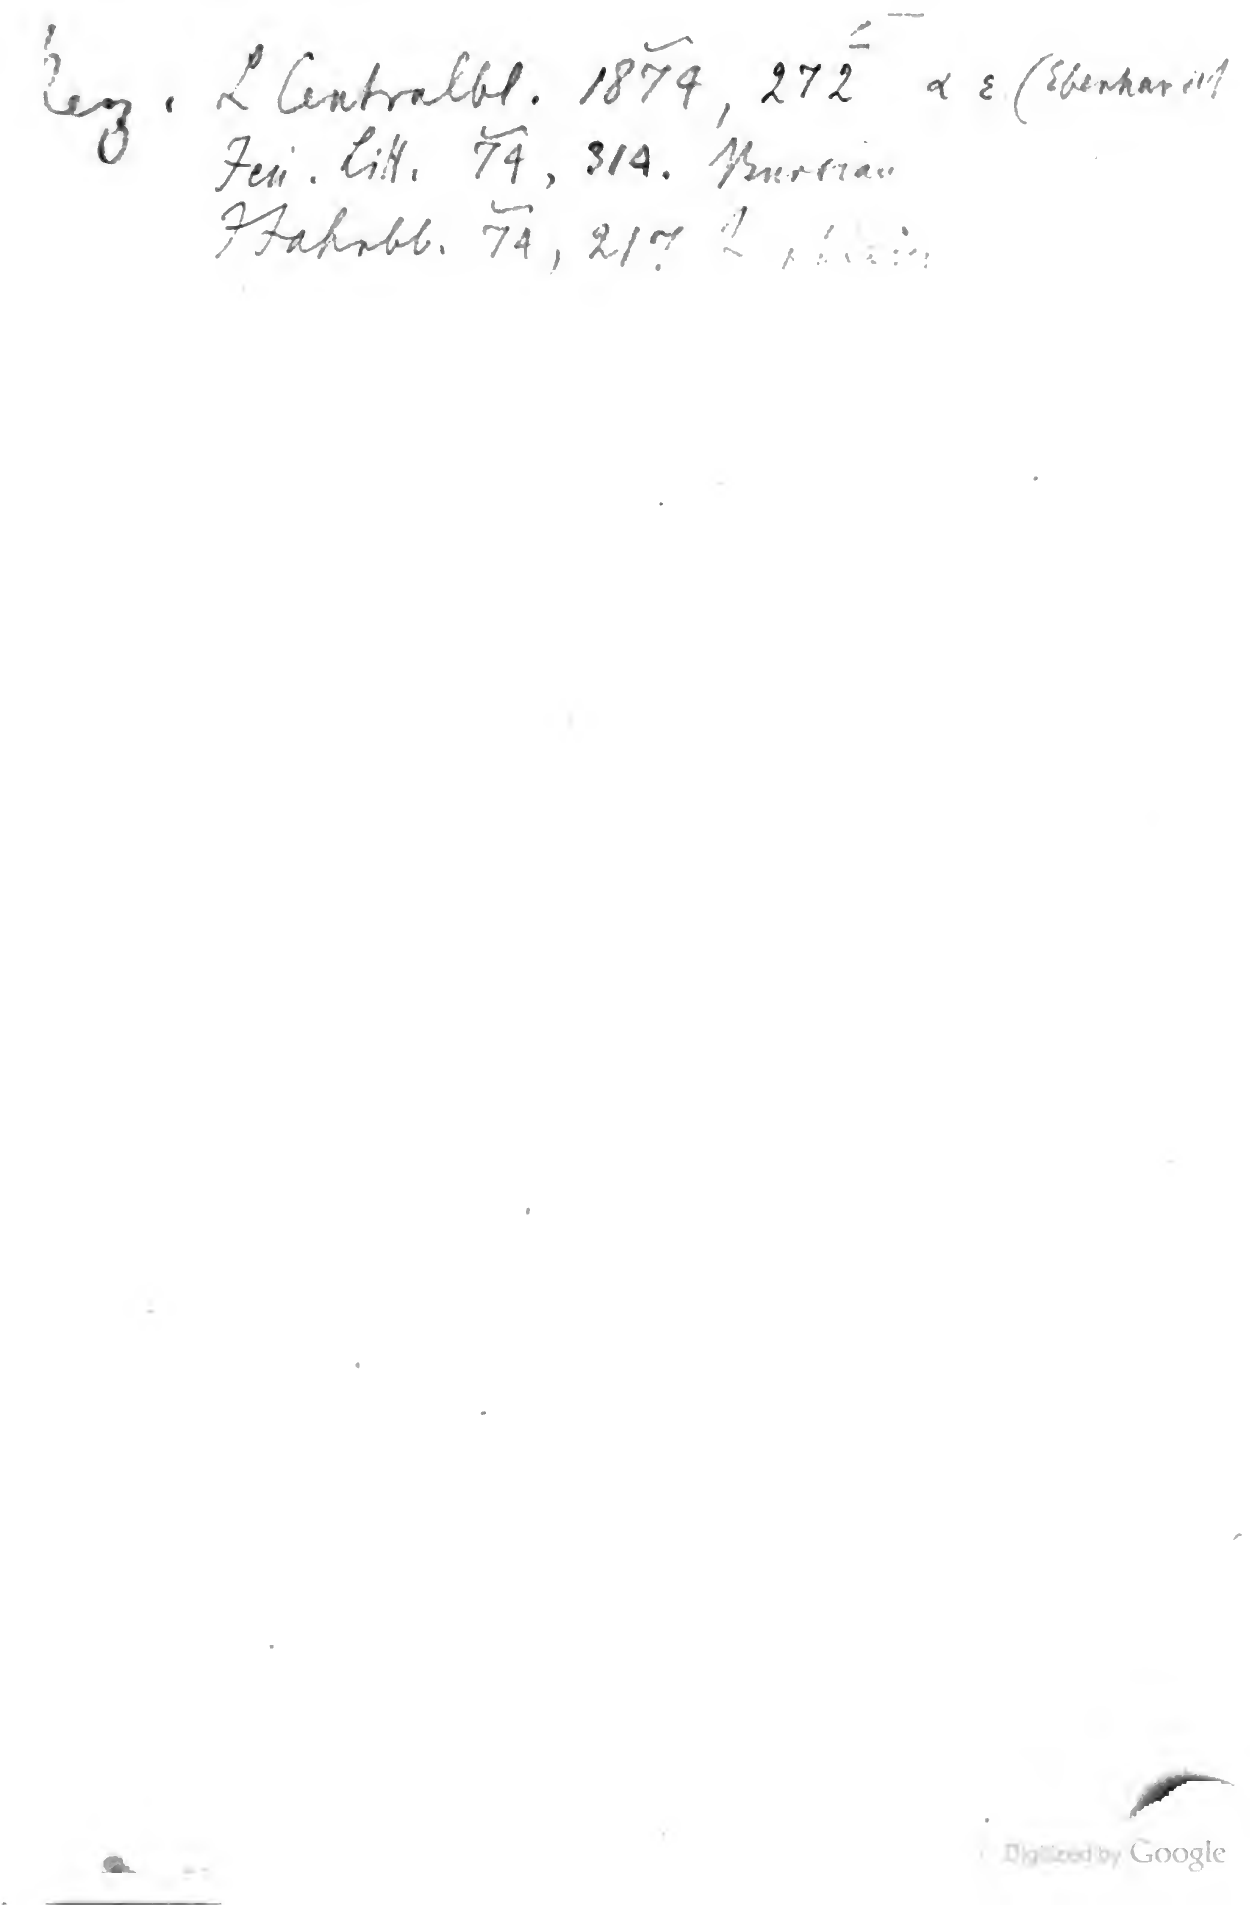 L Centralbl. 1874, 272 α ε (Eberhard
Jen. Litt. 74, 314. Bursian
Jahrbb. 74, 217
Digitized by Google